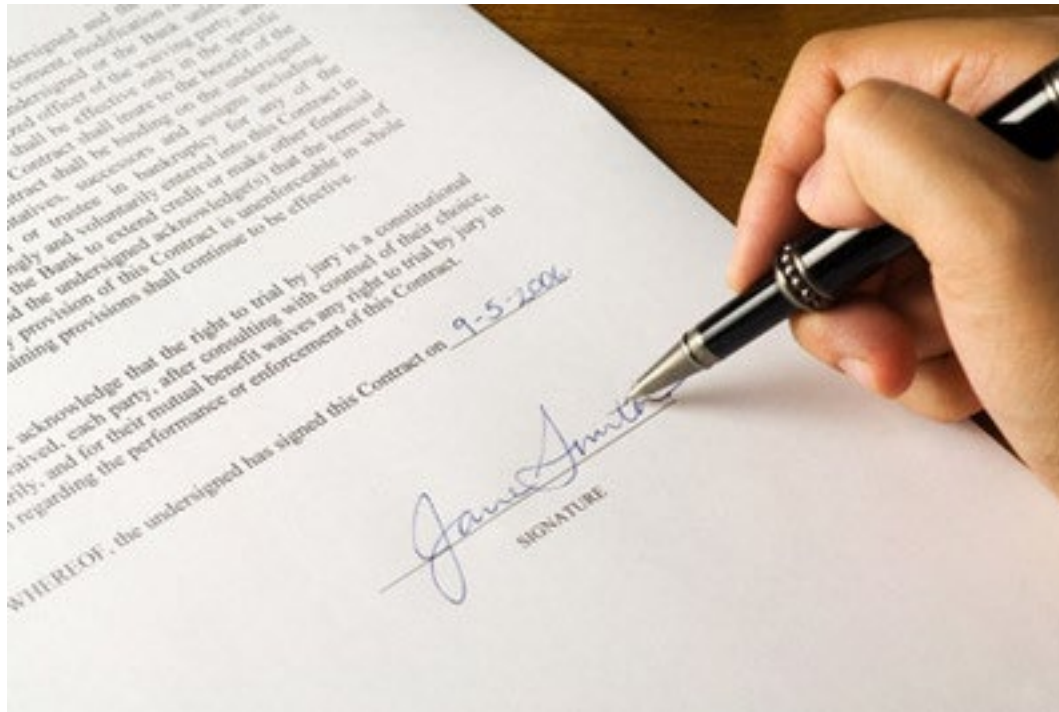 dersigned and the
consent, modification
undersigned or the Bank unless
ed officer of the waiving party, and
shall be effective only in the specific
Contract shall inure to the benefit of the
tract shall be binding on the undersigned
tatives, successors and assigns including,
or trustee in bankruptcy for any of the
ngly and voluntarily entered into this Contract in
the Bank to extend credit or make other financial
d the undersigned acknowledge(s) that the terms of
provision of this Contract is unenforceable in whole
aining provisions shall continue to be effective.
acknowledge that the right to trial by jury is a constitutional
waived, each party, after consulting with counsel of their choice,
rily, and for their mutual benefit waives any right to trial by jury in
n regarding the performance or enforcement of this Contract.
WHEREOF, the undersigned has signed this Contract on 9-5-2006
Jane Smith
SIGNATURE